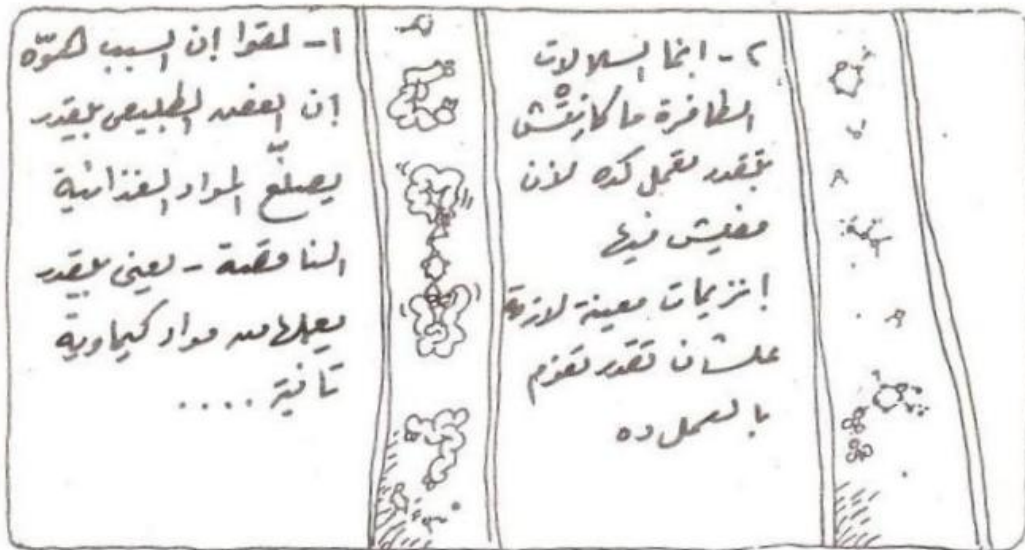 ١- لقوا إن السبب هوّه
إن العفن الطبيعى بيقدر
يصلّح المواد الغذائية
الناقصة - يعنى بيقدر
يعملها من مواد كيماوية
تانية ....
٢- انما السلالات
الطافرة ما كانِتْش
بتقدر تعمل كده لأن
مفيش فيها
إنزيمات معينة لازمة
علشان تقدر تقوم
بالعمل ده